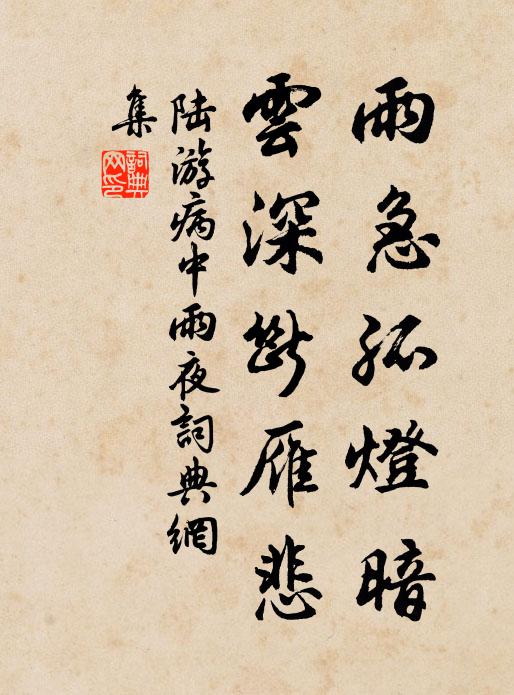 雨急孤燈暗
雲深斷雁悲
陆游病中雨夜詞典網
集
詞典
网印